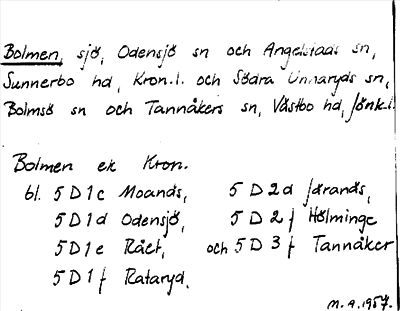 Bolmen, sjö, Odensjö sn och Angelstads sn,
Sunnerbo hd, Kron.l. och Södra Unnaryds sn,
Bolmsö sn och Tannåkers sn, Västbo hd, Jönk.l.
Bolmen ek Kron.
bl. 5 D 1 c Moanäs, 5 D 2 d Järanäs,
5 D 1 d Odensjö, 5 D 2 f Hölminge
5 D 1 e Rået, och 5 D 3 f Tannåker
5 D 1 f Rataryd.
M.A. 1957.